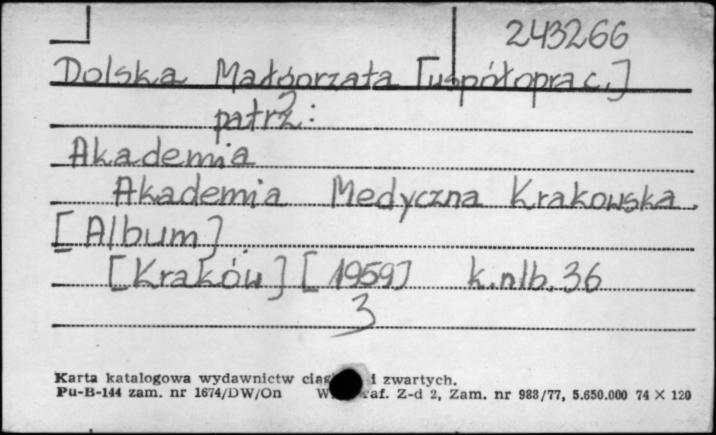 243266
Dolska Małgorzata [współoprac.]
patrz:
Akademia
Akademia Medyczna Krakowska.
[Album]
[Kraków] [1959] k.nlb. 36
3
Karta katalogowa wydawnictw i zwartych.
Pu-B-144 zam. nr 1674/DW/On Z-d 2, Zam. nr 988/77, 5.650.000 74 × 120